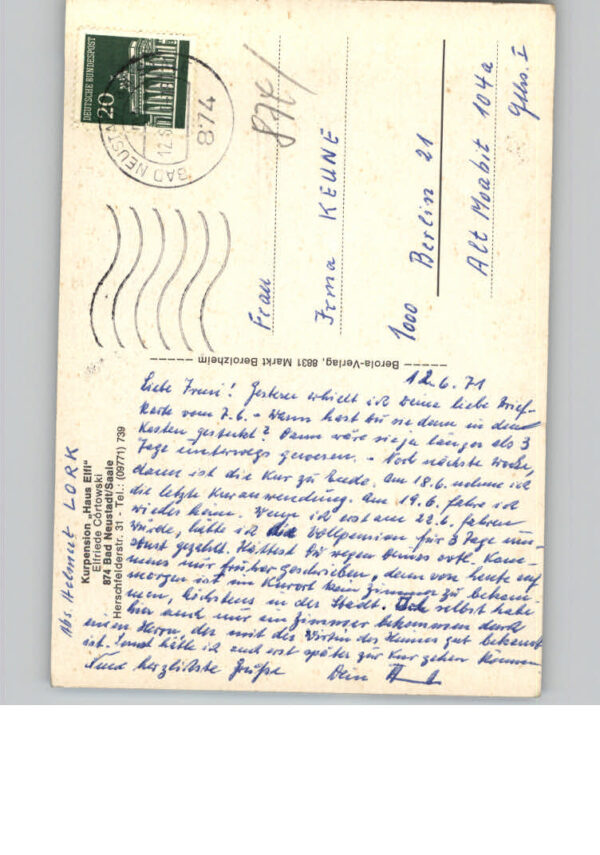 DEUTSCHE BUNDESPOST
20
BAD NEUSTA
12.6
874
874
Frau
Irma KEUNE
1000 Berlin 21
Alt Moabit 104a
Gths. I
Berola-Verlag, 8831 Markt Berolzheim
Abs. Helmut LORK
Kurpension „Haus Elfi"
Elfriede Cortowski
874 Bad Neustadt/Saale
Herschfelderstr. 31 - Tel.: (09771) 739
12.6.71
Liebe Irmi! Gestern erhielt ich Deine liebe Brief-
karte vom 7.6. - Wann hast Du sie denn in den
Kasten gesteckt? Dann wäre sie ja länger als 3
Tage unterwegs gewesen. - Noch nächste Woche,
dann ist die Kur zu Ende. Am 18.6. nehme ich
die letzte Kuranwendung. Am 19.6. fahre ich
wieder heim. Wenn ich erst am 22.6. fahren
würde, hätte ich die Vollpension für 3 Tage um-
sonst gezahlt. Hättest Du wegen Deines evtl. Kom-
mens nur früher geschrieben, denn von heute auf
morgen ist im Kurort kein Zimmer zu bekom-
men, höchstens in der Stadt. Ich selbst habe
hier auch nur ein Zimmer bekommen durch
einen Herrn, der mit der Wirtin des Hauses gut bekannt
ist. Sonst hätte ich auch erst später zur Kur gehen können
Und herzlichste Grüße Dein